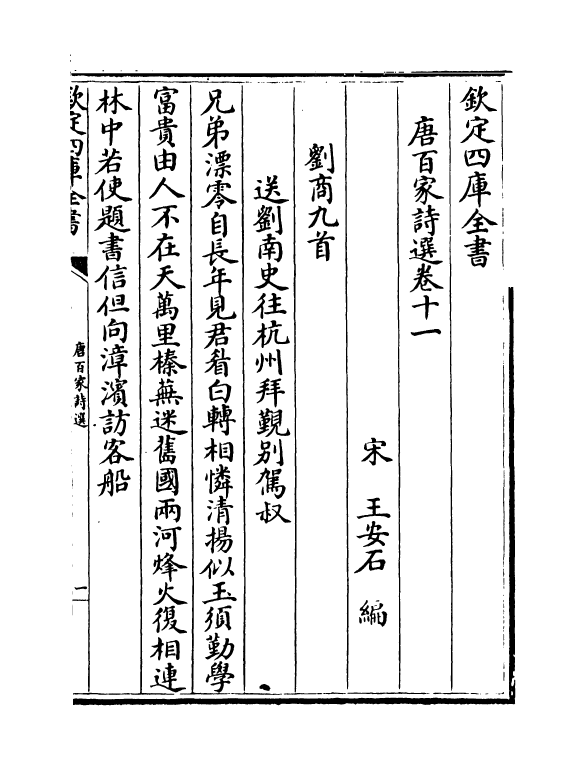 欽定四庫全書
唐百家詩選卷十一
宋 王安石 編
劉商九首
送劉南史往杭州拜覲别駕叔
兄弟漂零自長年見君眷白轉相憐清揚似玉須勤學
富貴由人不在天萬里榛蕪迷舊國兩河烽火復相連
林中若使題書信但向漳濱訪客船
欽定四庫全書
唐百家詩選
一